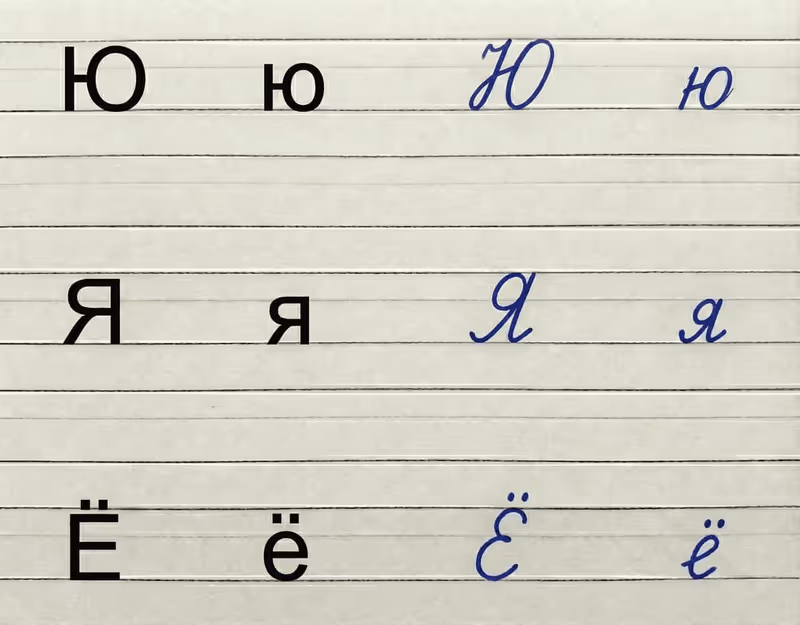 Ю ю Ю ю
Я я Я я
Ё ё Ё ё